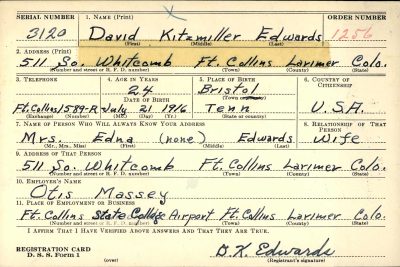 SERIAL NUMBER 1. NAME (Print) ORDER NUMBER
3120 David Kitzmiller Edwards 1256
(First) (Middle) (Last)
2. ADDRESS (Print)
511 So. Whitcomb Ft. Collins Larimer Colo.
(Number and street or R. F. D. number) (Town) (County) (State)
3. TELEPHONE 4. AGE IN YEARS 5. PLACE OF BIRTH 6. COUNTRY OF CITIZENSHIP
24 Bristol
DATE OF BIRTH (Town or county)
Ft. Collins/1589-R July 21 1916 Tenn U.S.A.
(Exchange) (Number) (Mo.) (Day) (Yr.) (State or country)
7. NAME OF PERSON WHO WILL ALWAYS KNOW YOUR ADDRESS 8. RELATIONSHIP OF THAT PERSON
Mrs. Edna (none) Edwards Wife
(Mr., Mrs., Miss) (First) (Middle) (Last)
9. ADDRESS OF THAT PERSON
511 So. Whitcomb Ft. Collins Larimer Colo.
(Number and street or R. F. D. number) (Town) (County) (State)
10. EMPLOYER'S NAME
Otis Massey
11. PLACE OF EMPLOYMENT OR BUSINESS
Ft. Collins State College Airport Ft. Collins Larimer Colo.
(Number and street or R. F. D. number) (Town) (County) (State)
I AFFIRM THAT I HAVE VERIFIED ABOVE ANSWERS AND THAT THEY ARE TRUE.
REGISTRATION CARD
D. S. S. Form 1 (over) D. K. Edwards
(Registrant's signature)